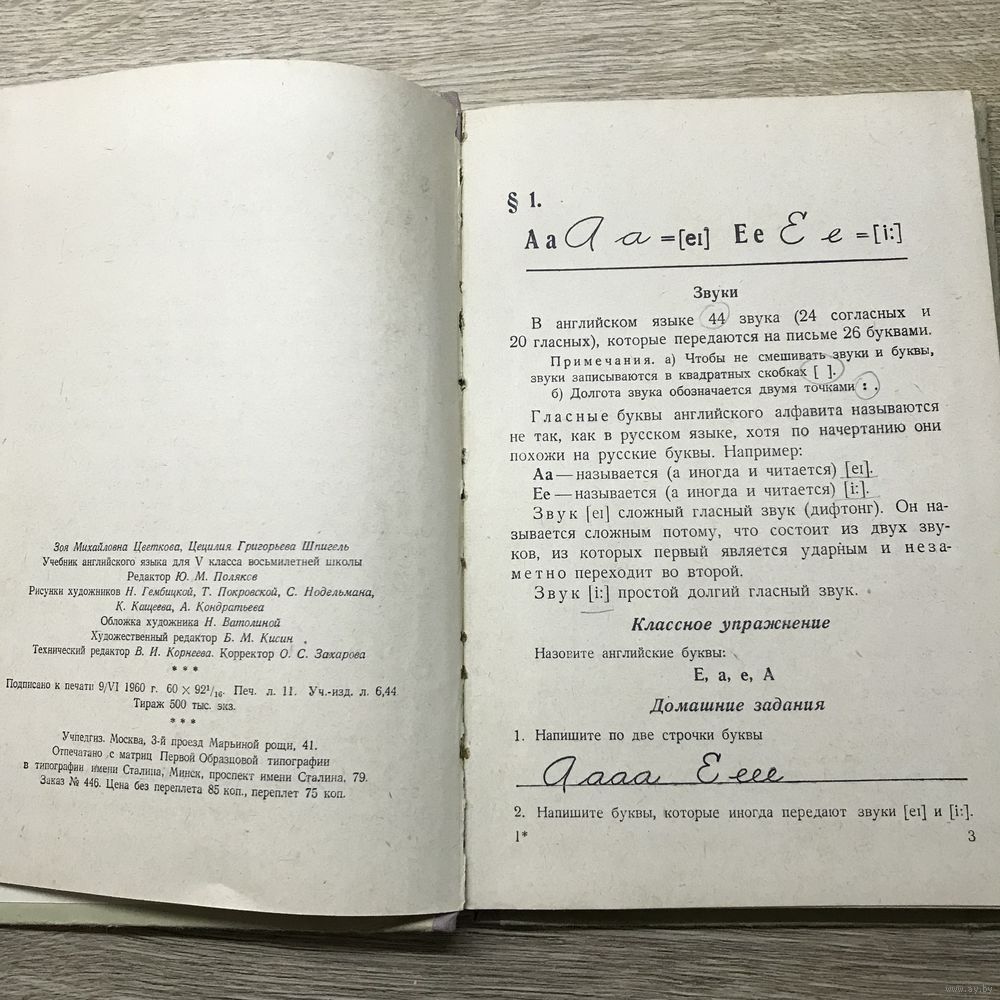 Зоя Михайловна Цветкова, Цецилия Григорьева Шпигель
Учебник английского языка для V класса восьмилетней школы
Редактор Ю. М. Поляков
Рисунки художников Н. Гембицкой, Т. Покровской, С. Нодельмана,
К. Кащеева, А. Кондратьева
Обложка художника Н. Ватолиной
Художественный редактор Б. М. Кисин
Технический редактор В. И. Корнеева. Корректор О. С. Захарова
* * *
Подписано к печати 9/VI 1960 г. 60 × 92 1/16. Печ. л. 11. Уч.-изд. л. 6,44
Тираж 500 тыс. экз.
* * *
Учпедгиз. Москва, 3-й проезд Марьиной рощи, 41.
Отпечатано с матриц Первой Образцовой типографии
в типографии имени Сталина, Минск, проспект имени Сталина, 79.
Заказ № 446. Цена без переплета 85 коп., переплет 75 коп.
§ 1.
A a A a =[eı] E e E e =[i:]
Звуки
В английском языке 44 звука (24 согласных и
20 гласных), которые передаются на письме 26 буквами.
Примечания. а) Чтобы не смешивать звуки и буквы,
звуки записываются в квадратных скобках [ ].
б) Долгота звука обозначается двумя точками : .
Гласные буквы английского алфавита называются
не так, как в русском языке, хотя по начертанию они
похожи на русские буквы. Например:
Aa — называется (а иногда и читается) [eı].
Ee — называется (а иногда и читается) [i:].
Звук [eı] сложный гласный звук (дифтонг). Он на-
зывается сложным потому, что состоит из двух зву-
ков, из которых первый является ударным и неза-
метно переходит во второй.
Звук [i:] простой долгий гласный звук.
Классное упражнение
Назовите английские буквы:
E, a, e, A
Домашние задания
1. Напишите по две строчки буквы
Aaaa Eeee
2. Напишите буквы, которые иногда передают звуки [eı] и [i:].
1* 3
www.ay.by